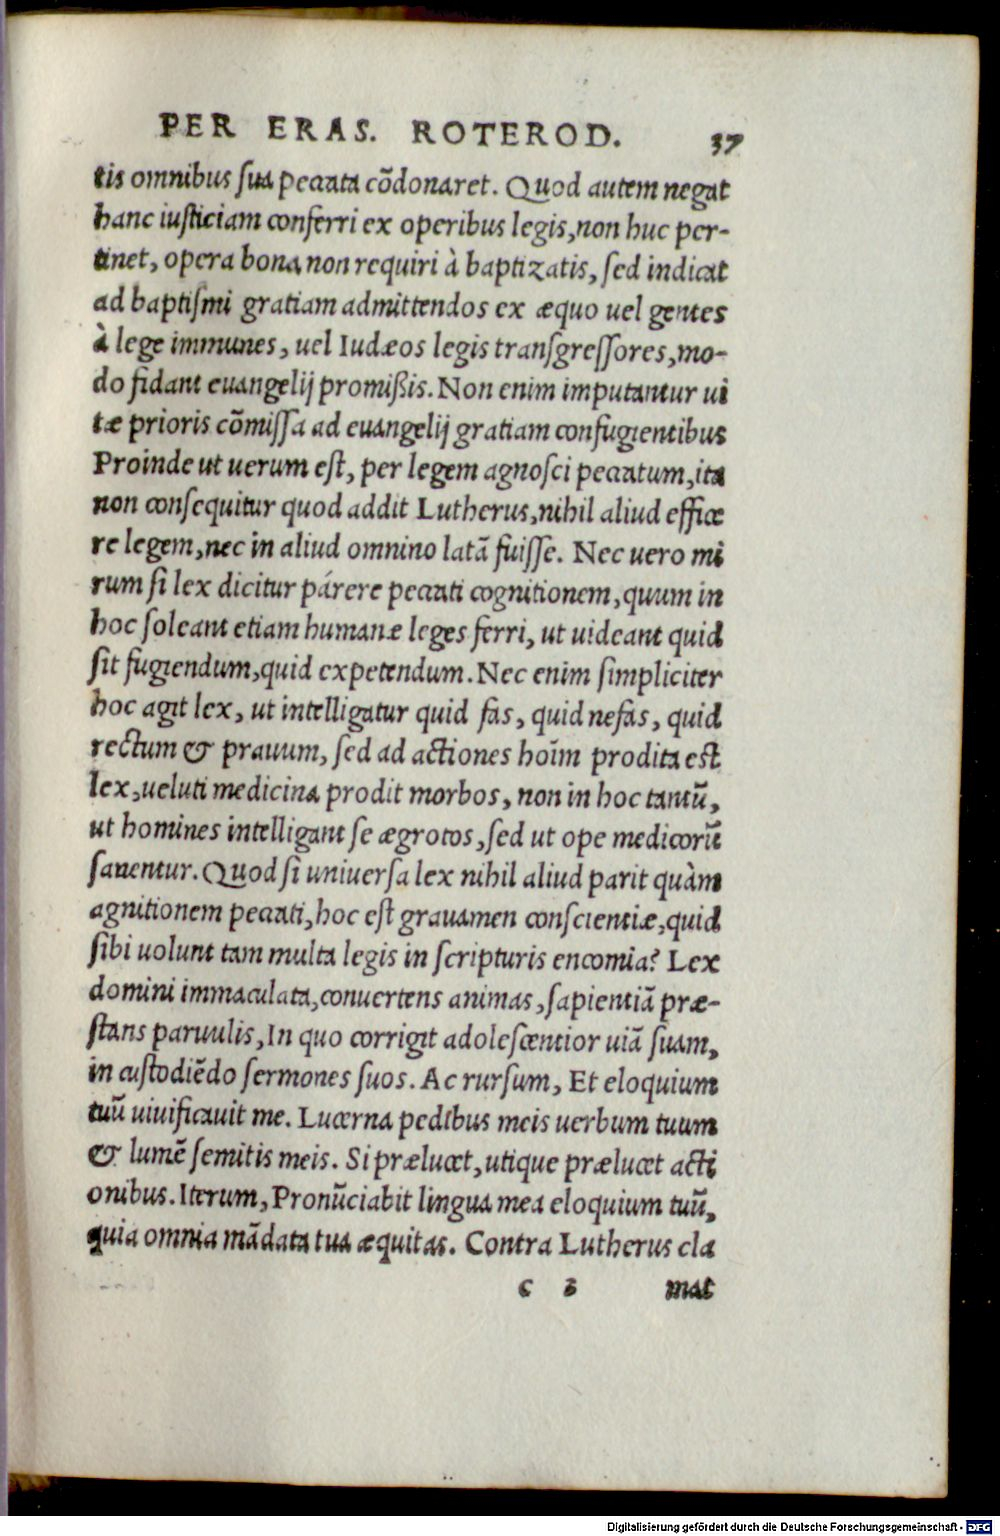 PER ERAS. ROTEROD. 37
tis omnibus sua peccata cõdonaret. Quod autem negat
hanc iusticiam conferri ex operibus legis, non huc per-
tinet, opera bona non requiri à baptizatis, sed indicat
ad baptismi gratiam admittendos ex æquo uel gentes
à lege immunes, uel Iudæos legis transgressores, mo-
do fidant euangelij promißis. Non enim imputantur ui
tæ prioris cõmissa ad euangelij gratiam confugientibus
Proinde ut uerum est, per legem agnosci peccatum, ita
non consequitur quod addit Lutherus, nihil aliud effice
re legem, nec in aliud omnino latã fuisse. Nec uero mi
rum si lex dicitur párere peccati cognitionem, quum in
hoc soleant etiam humanæ leges ferri, ut uideant quid
sit fugiendum, quid expetendum. Nec enim simpliciter
hoc agit lex, ut intelligatur quid fas, quid nefas, quid
rectum & prauum, sed ad actiones hoĩm prodita est
lex, ueluti medicina prodit morbos, non in hoc tantũ,
ut homines intelligant se ægrotos, sed ut ope medicorũ
sanentur. Quod si uniuersa lex nihil aliud parit quàm
agnitionem peccati, hoc est grauamen conscientiæ, quid
sibi uolunt tam multa legis in scripturis encomia? Lex
domini immaculata, conuertens animas, sapientiã præ-
stans paruulis, In quo corrigit adolescentior uiã suam,
in custodiẽdo sermones suos. Ac rursum, Et eloquium
tuũ uiuificauit me. Lucerna pedibus meis uerbum tuum
& lumẽ semitis meis. Si prælucet, utique prælucet acti
onibus. Iterum, Pronũciabit lingua mea eloquium tuũ,
quia omnia mãdata tua æquitas. Contra Lutherus cla
c 3 mat
Digitalisierung gefördert durch die Deutsche Forschungsgemeinschaft - DFG